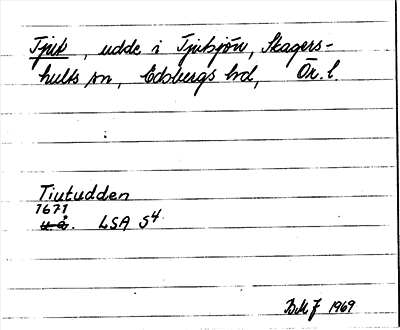 Tjuk, udde i Tjuksjön, Skagers-
hults sn, Edsbergs hd, Ör. l.
Tiutudden
1671
u.å. LSA S4
B.M.J 1969